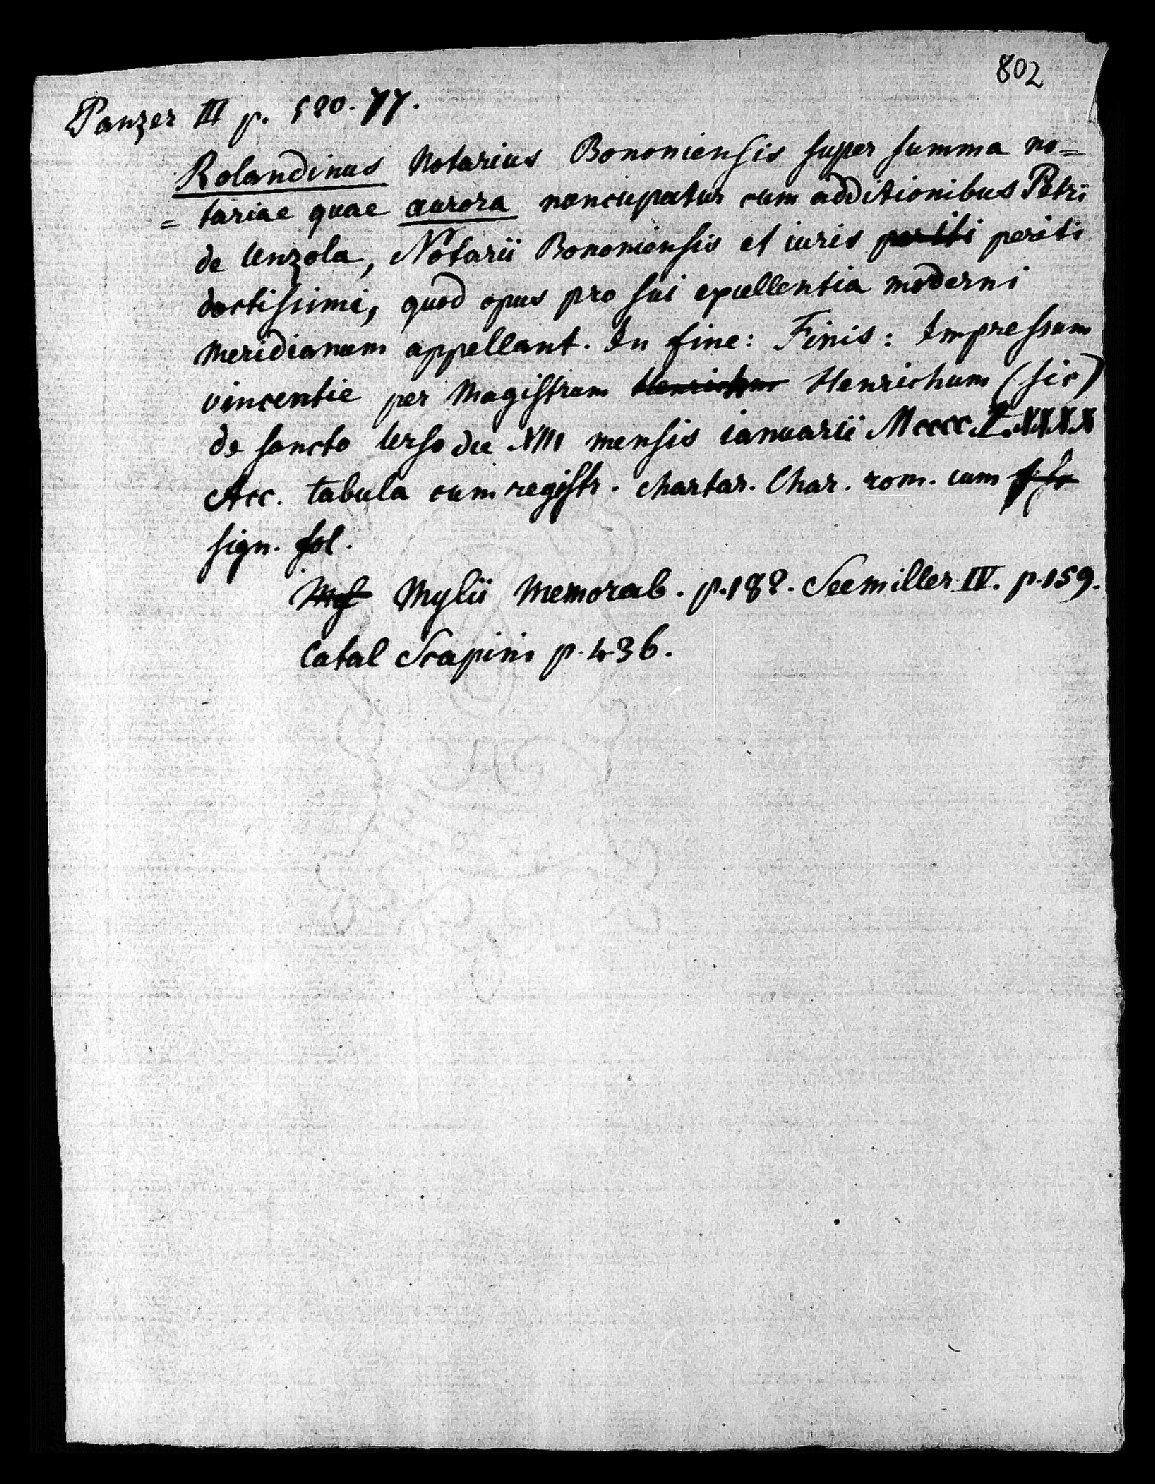 802
Panzer III p. 520. 77.
Rolandinus Notarius Bononiensis super summa no=
=tariae quae aurora noncupatur cum additionibus Petri
de Unzola, Notarii Bononiensis et iuris periti periti
doctissimi, quod opus pro sui excellentia moderni
meridianam appellant. In fine: Finis: Impressum
vincentie per Magistrum Henrichum Henrichum (sic)
de sancto Urso die XIII mensis ianuarii Mcccc.LXXXX
Acc. tabula cum registr. chartar. Char. rom. cum
sign. fol.
Mylii Memorab. p. 182. Seemiller IV. p. 159.
Catal Scapini p. 436.